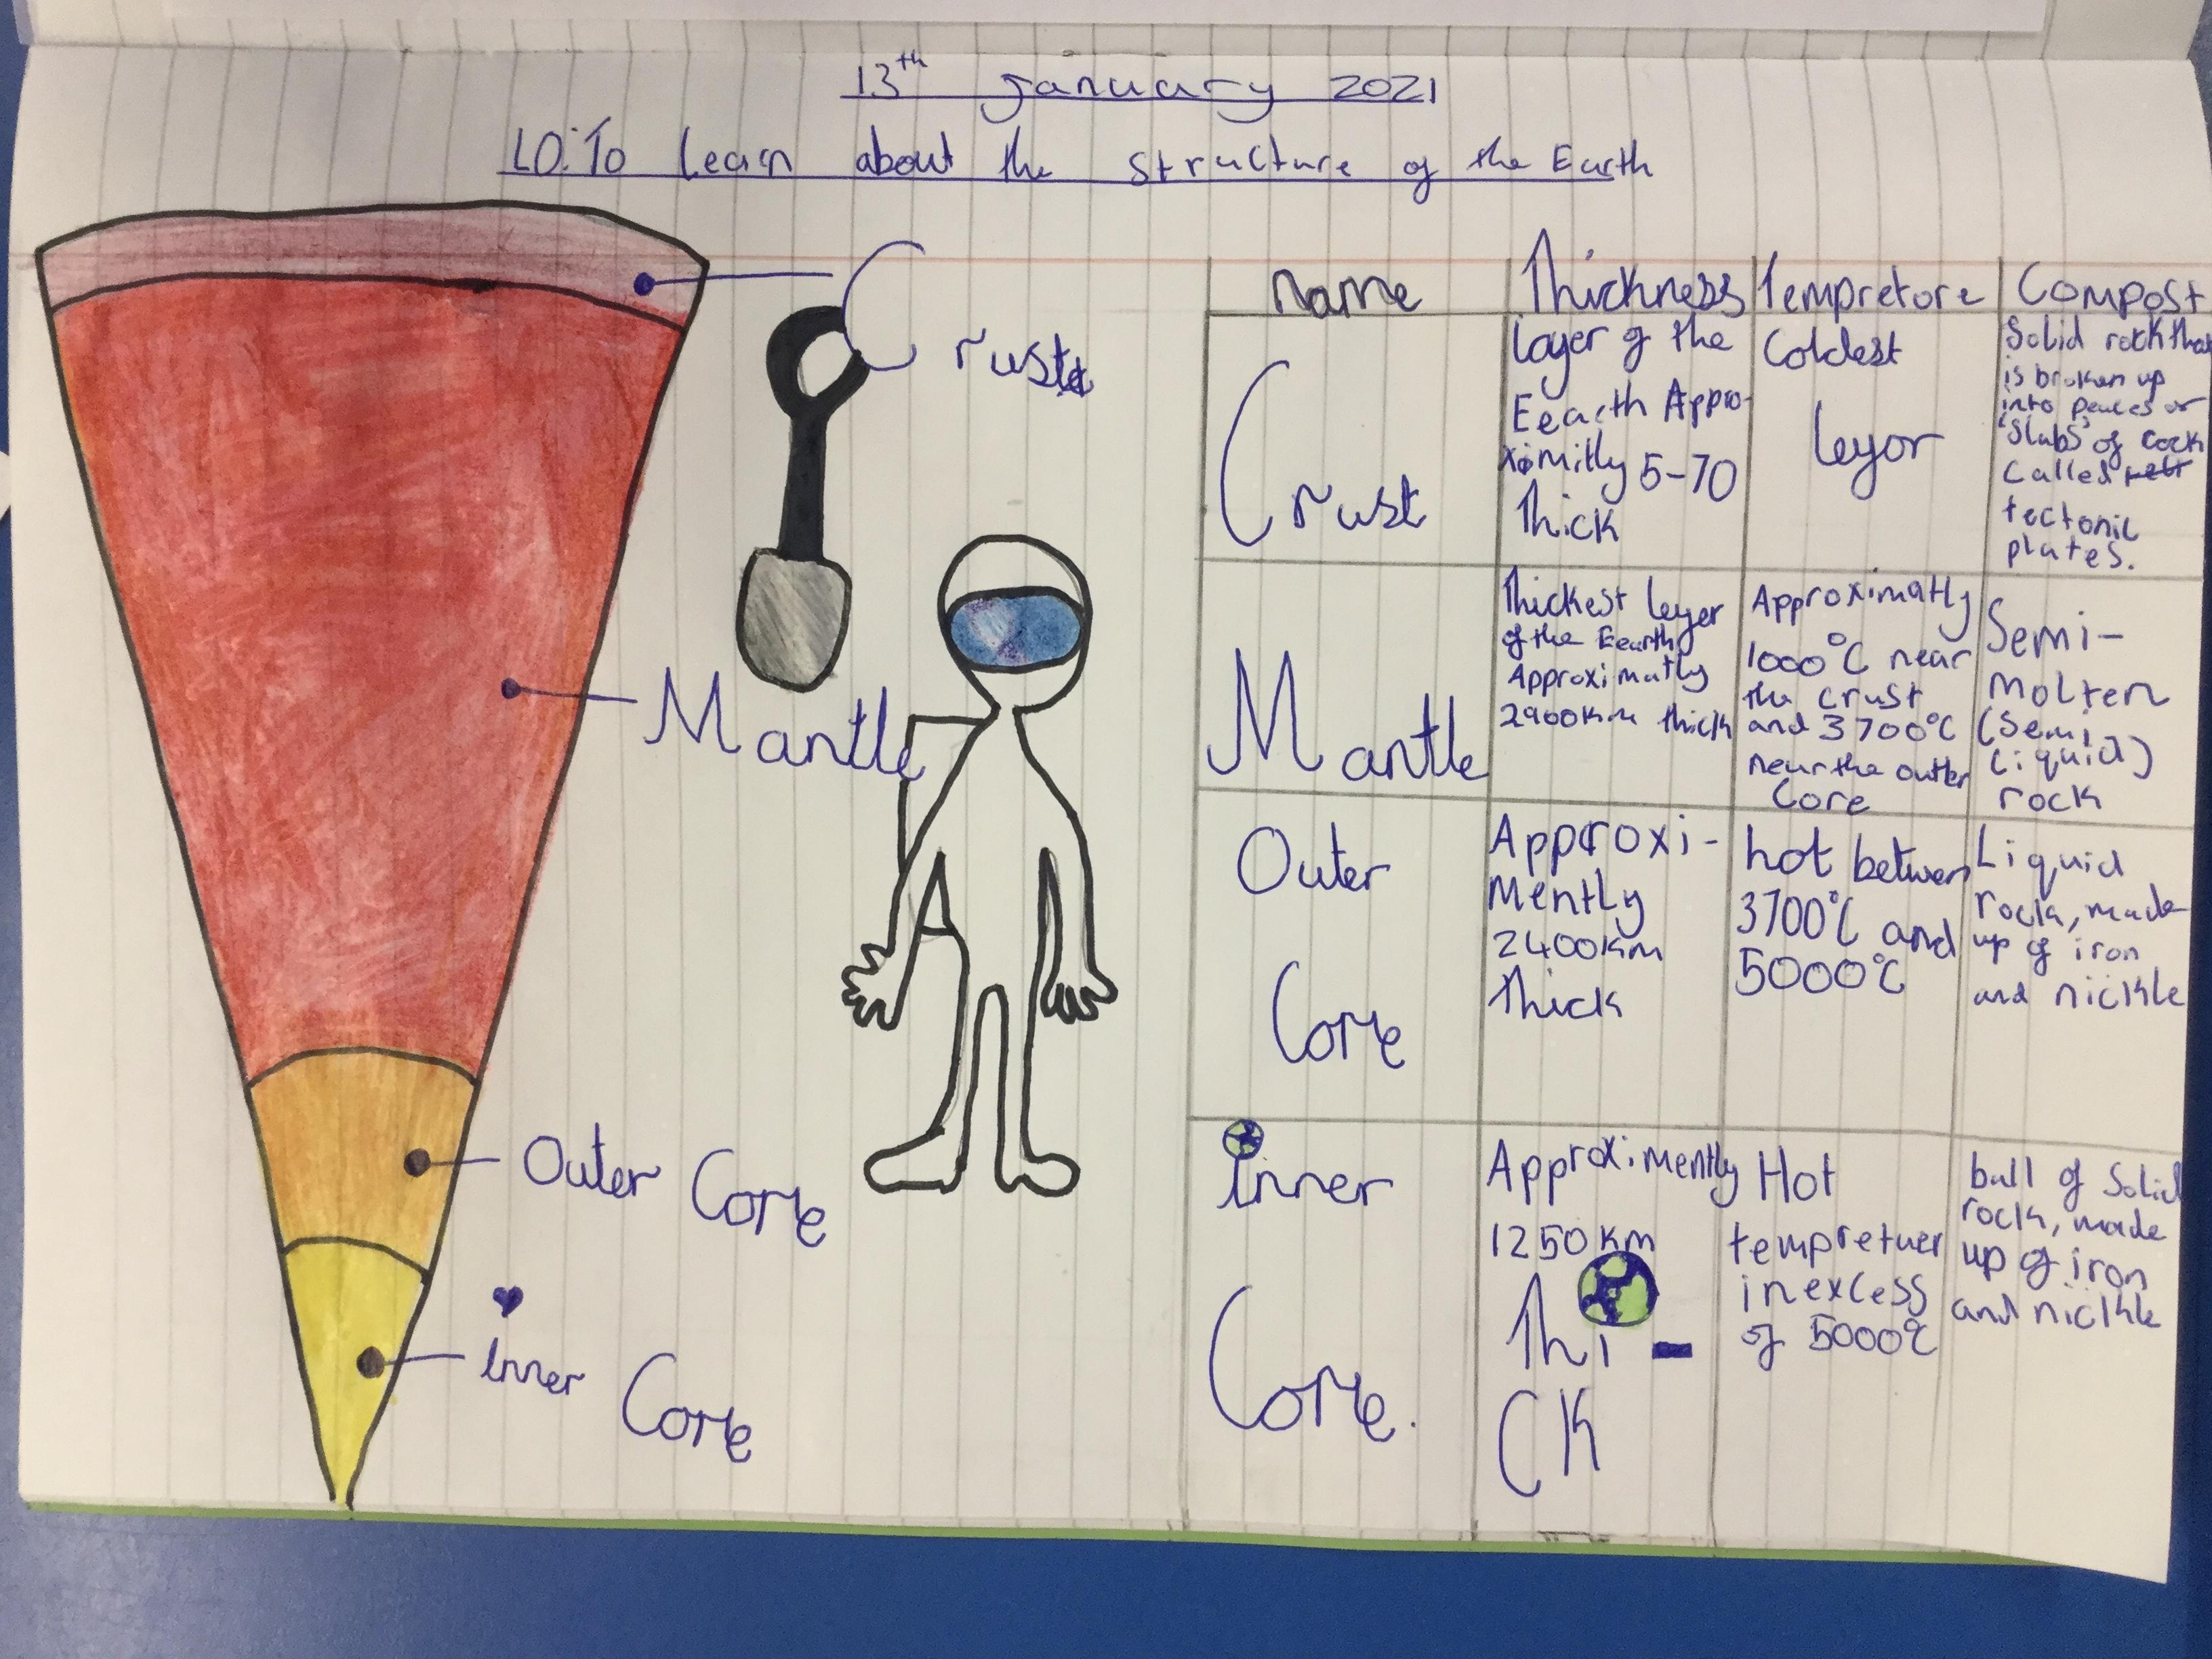 13th January 2021
LO: To learn about the structure of the Earth
Crust
Mantle
Outer Core
Inner
Core
Name
Thickness
Tempretore
Compost
Crust
layer of the
Eearth Appro-
ximitly 5-70
thick
Coldest
leyor
Solid rock that
is broken up
into peaces or
'slabs' of rock
called
tectonic
plates.
Mantle
Thickest leyer
of the Eearth
Approximatly
2900km thick
Approximatly
1000°C near
the crust
and 3700°C
near the outer
Core
Semi-
molten
(semi
liquid)
rock
Outer
Core
Approxi-
mently
2400km
thick
hot between
3700°C and
5000°C
Liquid
rock, made
up of iron
and nickle
inner
Core.
Approximently
1250km
Thi-
CK
Hot
tempretuer
in excess
of 5000°C
ball of solid
rock, made
up of iron
and nickle